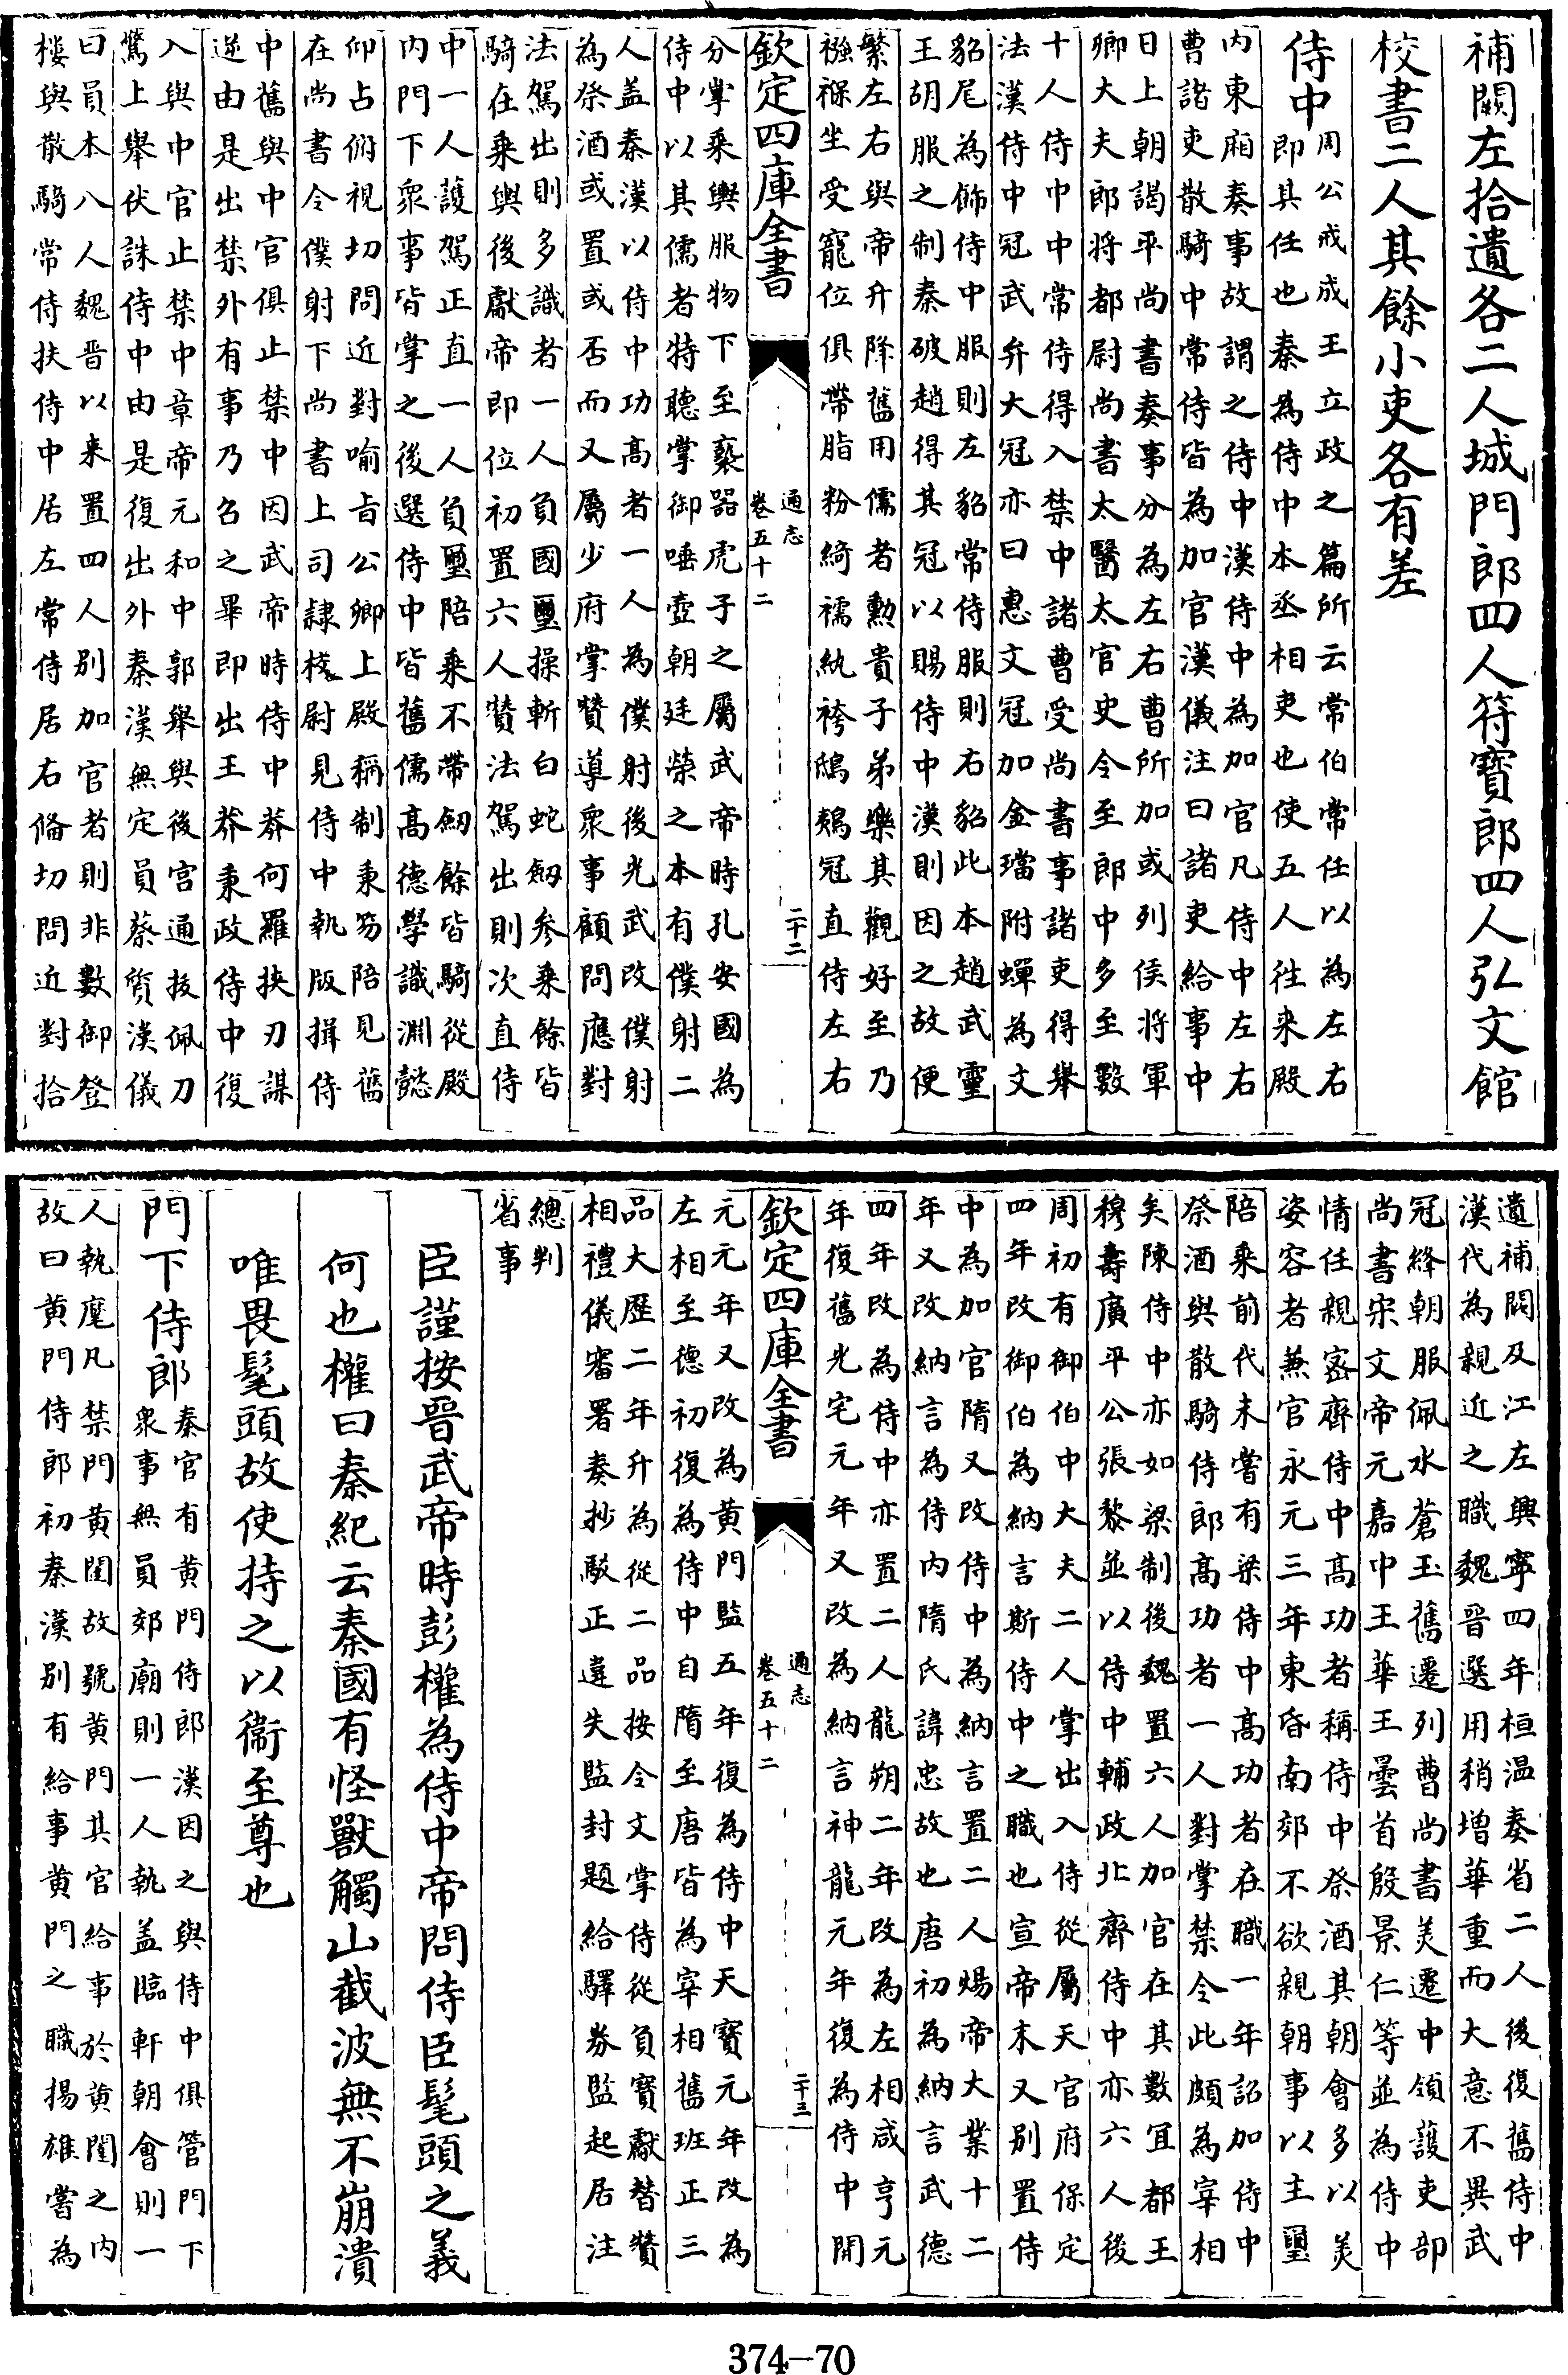 補闕左拾遺各二人城門郎四人符寶郎四人弘文館
校書二人其餘小吏各有差
侍中
周公戒成王立政之篇所云常伯常任以為左右
即其任也秦為侍中本丞相吏也使五人往来殿
内東廂奏事故謂之侍中漢侍中為加官凡侍中左右
曹諸吏散騎中常侍皆為加官漢儀注曰諸吏給事中
日上朝謁平尚書奏事分為左右曹所加或列侯将軍
卿大夫郎将都尉尚書太醫太官史令至郎中多至數
十人侍中中常侍得入禁中諸曹受尚書事諸吏得舉
法漢侍中冠武弁大冠亦曰惠文冠加金璫附蟬為文
貂尾為飾侍中服則左貂常侍服則右貂此本趙武靈
王胡服之制秦破趙得其冠以賜侍中漢則因之故便
繁左右與帝升降舊用儒者勲貴子弟樂其觀好至乃
襁褓坐受寵位俱帶脂粉綺襦紈袴冠直侍左右
欽定四庫全書
通志
卷五十二
二十二
分掌乘輿服物下至褻器虎子之屬武帝時孔安國為
侍中以其儒者特聽掌御唾壺朝廷榮之本有僕射二
人盖秦漢以侍中功高者一人為僕射後光武改僕射
為祭酒或置或否而又屬少府掌贊導衆事顧問應對
法駕出則多識者一人負國璽操斬白蛇劒參乘餘皆
騎在乘輿後獻帝即位初置六人贊法駕出則次直侍
中一人護駕正直一人負璽陪乘不帶劒餘皆騎從殿
内門下衆事皆掌之後選侍中皆舊儒高德學識淵懿
仰占俯視切問近對喻旨公卿上殿稱制秉笏陪見舊
在尚書令僕射下尚書上司隷校尉見侍中執版揖侍
中舊與中官俱止禁中因武帝時侍中莽何羅挾刃謀
逆由是出禁外有事乃召之畢即出王莽秉政侍中復
入與中官止禁中章帝元和中郭舉與後宫通拔佩刀
驚上舉伏誅侍中由是復出外秦漢無定員蔡質漢儀
曰員本八人魏晋以来置四人别加官者則非數御登
樓與散騎常侍扶侍中居左常侍居右俻切問近對拾
遺補闕及江左興寧四年桓温奏省二人後復舊侍中
漢代為親近之職魏晋選用稍增華重而大意不異武
冠絳朝服佩水蒼玉舊遷列曹尚書美遷中領護吏部
尚書宋文帝元嘉中王華王曇首殷景仁等並為侍中
情任親宻齊侍中高功者稱侍中祭酒其朝會多以美
姿容者兼官永元三年東昏南郊不欲親朝事以主璽
陪乘前代未嘗有梁侍中高功者在職一年詔加侍中
祭酒與散騎侍郎高功者一人對掌禁令此頗為宰相
矣陳侍中亦如梁制後魏置六人加官在其數宜都王
穆壽廣平公張黎並以侍中輔政北齊侍中亦六人後
周初有御伯中大夫二人掌出入侍從屬天官府保定
四年改御伯為納言斯侍中之職也宣帝末又别置侍
中為加官隋又改侍中為納言置二人煬帝大業十二
年又改納言為侍内隋氏諱忠故也唐初為納言武德
四年改為侍中亦置二人龍朔二年改為左相咸亨元
年復舊光宅元年又改為納言神龍元年復為侍中開
欽定四庫全書
通志
卷五十二
二十三
元元年又改為黄門監五年復為侍中天寳元年改為
左相至德初復為侍中自隋至唐皆為宰相舊班正三
品大歷二年升為從二品按令文掌侍從負寳獻替贊
相禮儀審署奏抄駁正違失監封題給驛券監起居注
總判
省事
臣謹按晋武帝時彭權為侍中帝問侍臣髦頭之義
何也權曰秦紀云秦國有怪獸觸山截波無不崩潰
唯畏髦頭故使持之以衞至尊也
門下侍郎
秦官有黄門侍郎漢因之與侍中俱管門下
衆事無員郊廟則一人執盖臨軒朝會則一
人執麾凡禁門黄闥故號黄門其官給事於黄闥之内
故曰黄門侍郎初秦漢别有給事黄門之職揚雄嘗為
374-70